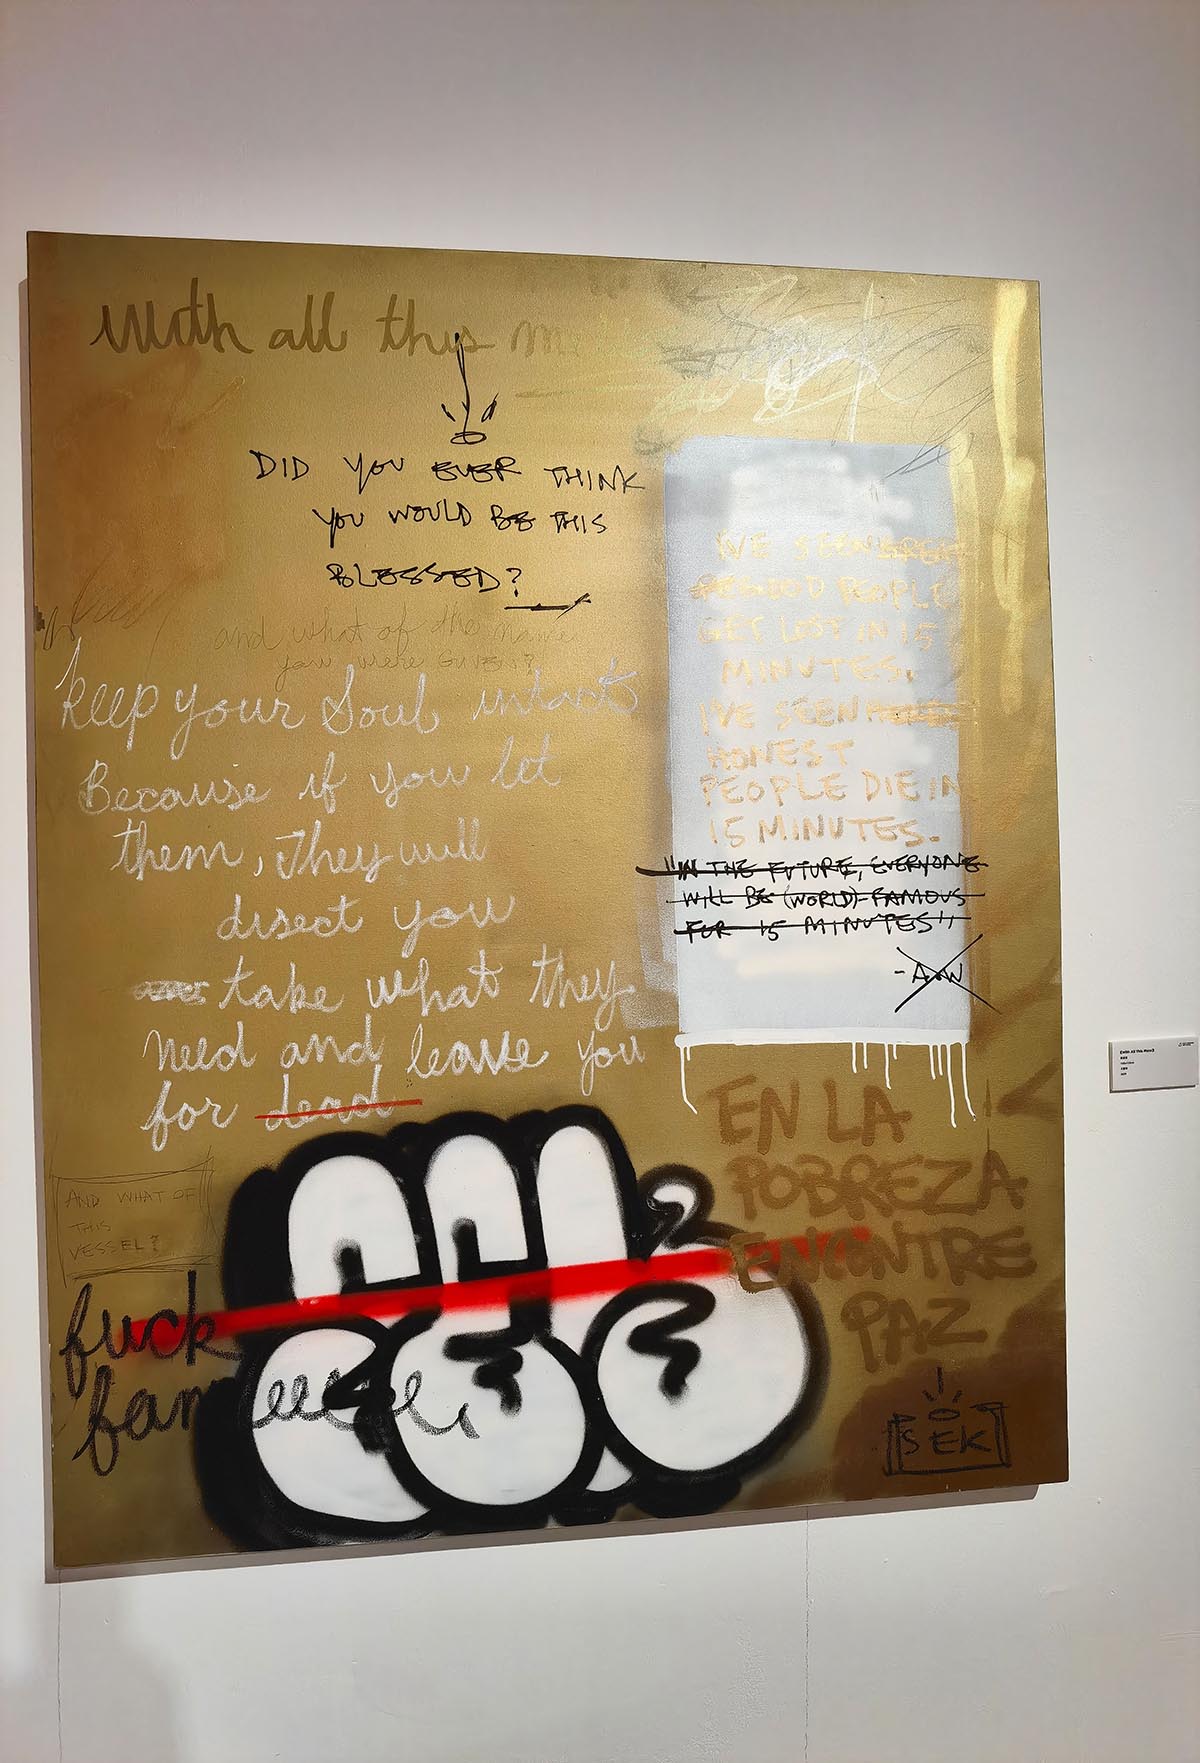 With all this
DID YOU EVER THINK
YOU WOULD BE THIS
BLESSED?
and what of the Name
you were GIVEN?
keep your Soul intact
Because if you let
them, They will
disect you
take what they
Need and leave you
for dead
I'VE SEEN
GOOD PEOPLE
GET LOST IN 15
MINUTES.
I'VE SEEN
HONEST
PEOPLE DIE IN
15 MINUTES.
"IN THE FUTURE, EVERYONE
WILL BE (WORLD)-FAMOUS
FOR 15 MINUTES"
- A.W
EN LA
POBREZA
ENCONTRE
PAZ
AND WHAT OF
THIS
VESSEL?
fuck
fam
SEK